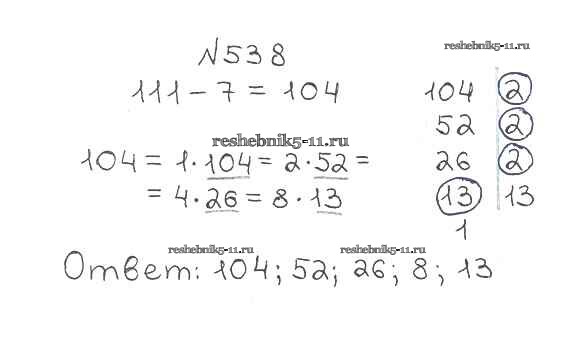 №538
reshebnik5-11.ru
111 - 7 = 104
104 | 2
52 | 2
reshebnik5-11.ru
104 = 1 · 104 = 2 · 52 =
26 | 2
= 4 · 26 = 8 · 13
13 | 13
1
reshebnik5-11.ru
reshebnik5-11.ru
Ответ: 104; 52; 26; 8; 13